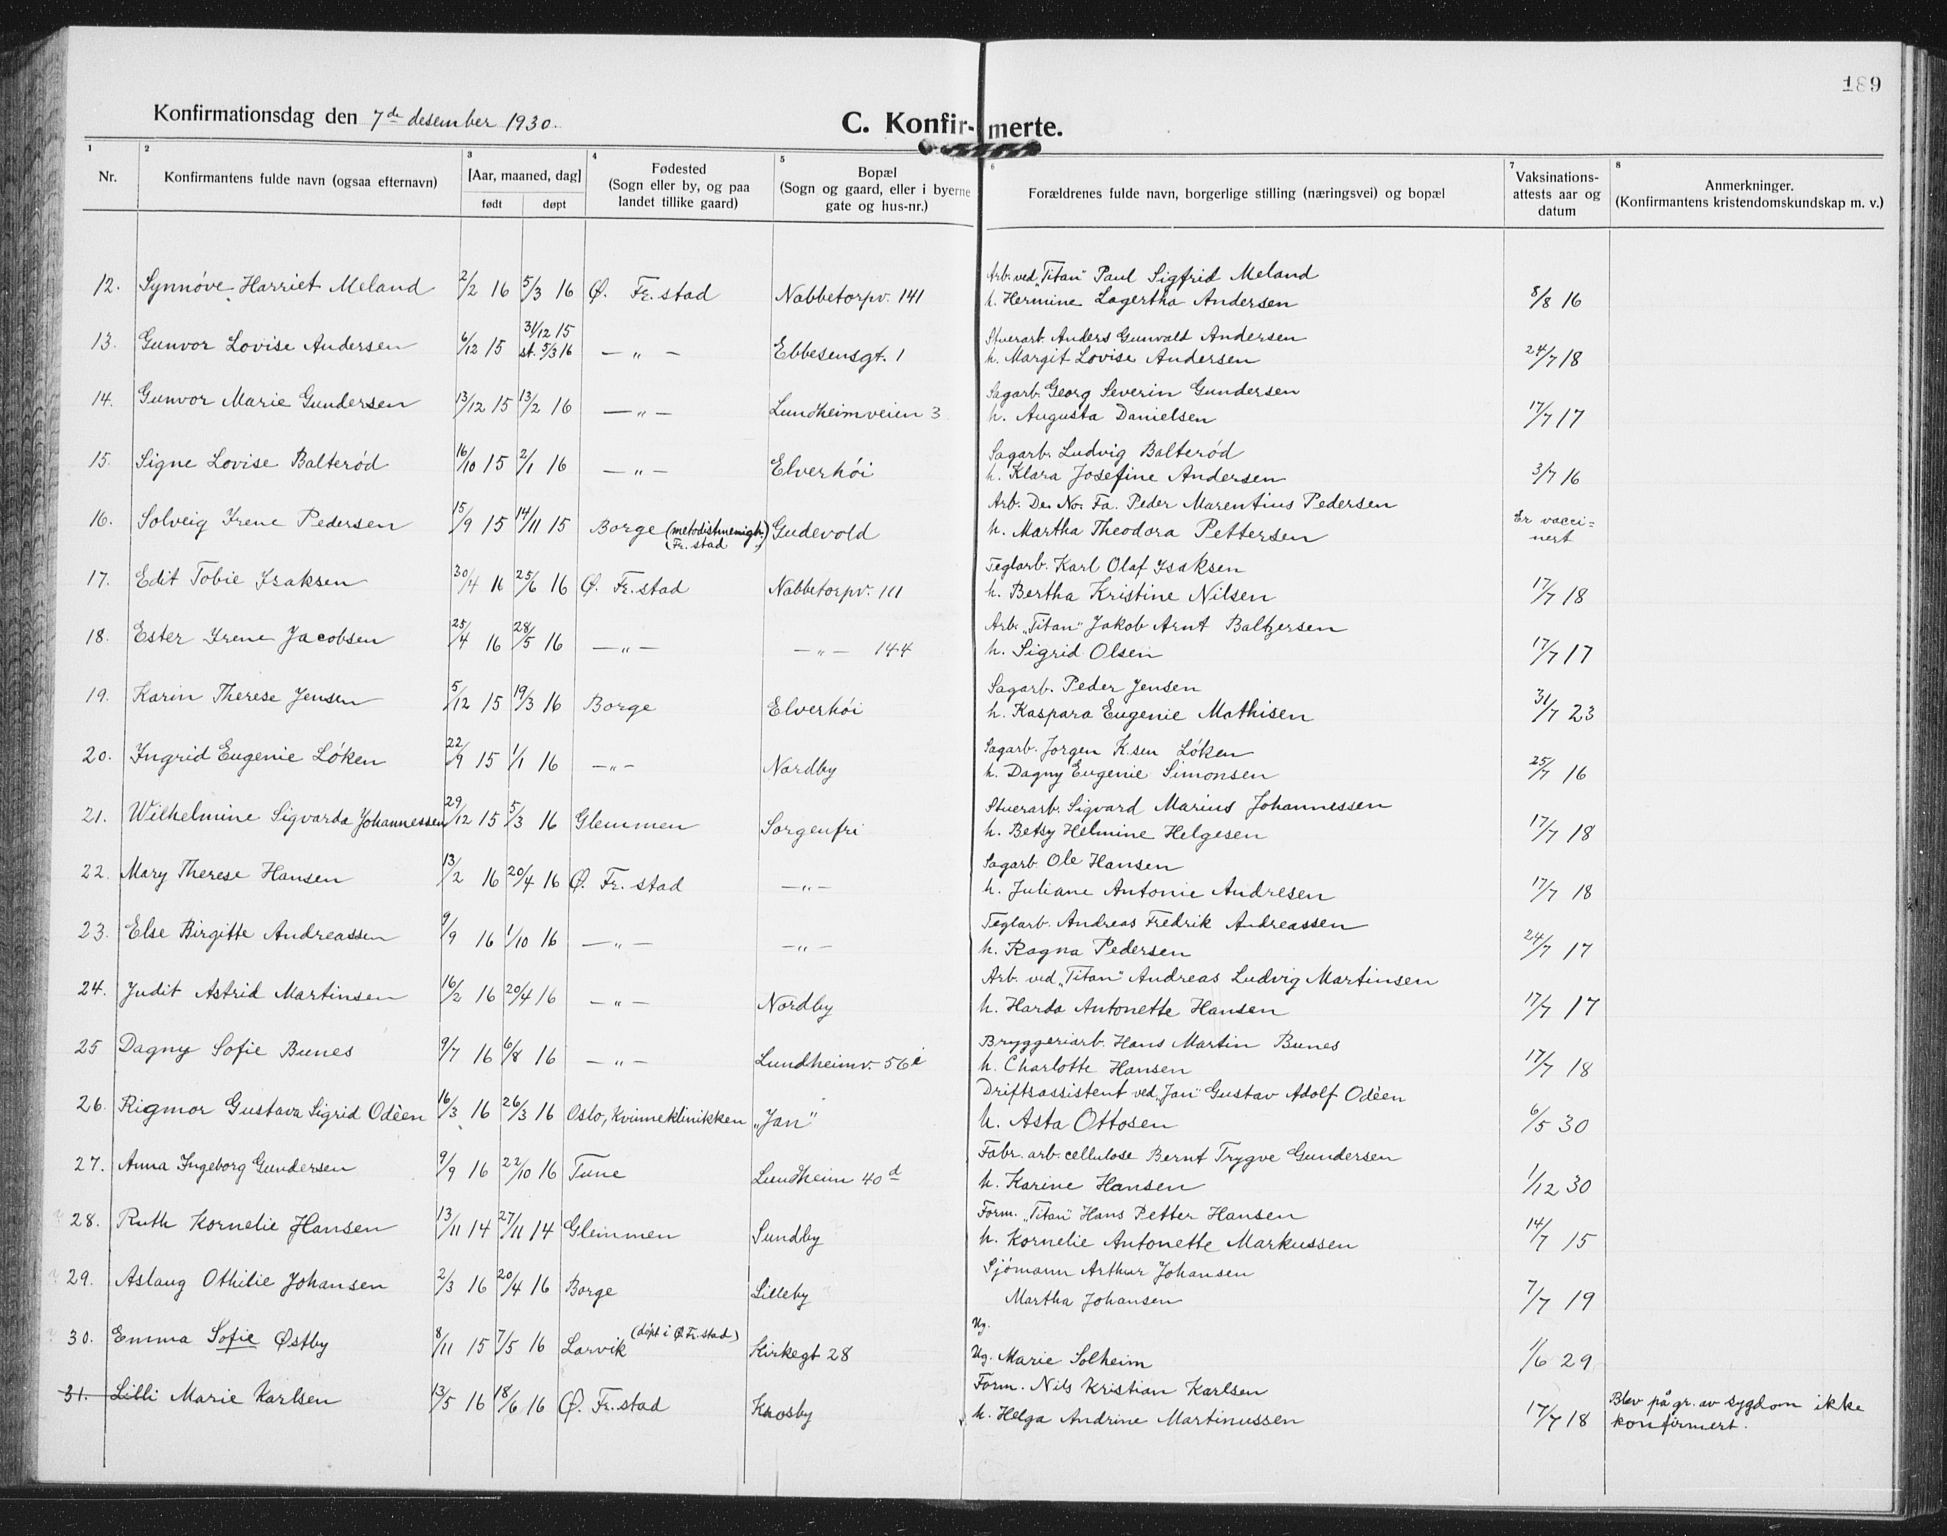 189
Konfirmationsdag den 7de desember 1930.
C. Konfir- merte.
1 2 3 4 5 6 7 8
Nr. Konfirmantens fulde navn (ogsaa efternavn) [Aar, maaned, dag] født døpt Fødested (Sogn eller by, og paa landet tillike gaard) Bopæl (Sogn og gaard, eller i byerne gate og hus-nr.) Forældrenes fulde navn, borgerlige stilling (næringsvei) og bopæl Vaksinations-attests aar og datum Anmerkninger. (Konfirmantens kristendomskundskap m. v.)
12. Synnøve Harriet Meland 2/2 16 5/3 16 Ø. Fr.stad Nabbetorpv. 141 Arb. ved „Titan" Paul Sigfrid Meland
h. Hermine Lagertha Andersen 8/8 16
13. Gunvor Lovise Andersen 6/12 15 31/12 15 st. 5/3 16 — „ — Ebbesensgt. 1 Stuerarb. Anders Gunvald Andersen
h. Margit Lovise Andersen 24/7 18
14. Gunvor Marie Gundersen 13/12 15 13/2 16 — „ — Lundheimveien 3 Sagarb. Georg Severin Gundersen
h. Augusta Danielsen 17/7 17
15. Signe Lovise Balterød 16/10 15 2/1 16 — „ — Elverhøi Sagarb. Ludvig Balterød
h. Klara Josefine Andersen 3/7 16
16. Solveig Irene Pedersen 15/9 15 14/11 15 Borge (metodistmenigh. Fr. stad) Gudevold Arb. De. No. Fa. Peder Marentius Pedersen
h. Martha Theodora Pettersen Er vacci-nert
17. Edit Tobie Isaksen 30/4 16 25/6 16 Ø. Fr.stad Nabbetorpv. 111 Teglarb. Karl Olaf Isaksen
h. Bertha Kristine Nilsen 17/7 18
18. Ester Irene Jacobsen 25/4 16 28/5 16 — „ — — „ — 144 Arb. „Titan" Jakob Arnt Baltzersen
h. Sigrid Olsen 17/7 17
19. Karin Therese Jensen 5/12 15 19/3 16 Borge Elverhøi Sagarb. Peder Jensen
h. Kaspara Eugenie Mathisen 31/7 23
20. Ingrid Eugenie Løken 22/9 15 1/1 16 — „ — Nordby Sagarb. Jørgen K.sen Løken
h. Dagny Eugenie Simonsen 25/7 16
21. Wilhelmine Sigvarda Johannessen 29/12 15 5/3 16 Glemmen Sorgenfri Stuerarb. Sigvard Marius Johannessen
h. Betsy Helmine Helgesen 17/7 18
22. Mary Therese Hansen 13/2 16 20/4 16 Ø. Fr. stad — „ — Sagarb. Ole Hansen
h. Juliane Antonie Andresen 17/7 18
23. Else Birgitte Andreassen 9/9 16 1/10 16 — „ — — „ — Teglarb. Andreas Fredrik Andreassen
h. Ragna Pedersen 24/7 17
24. Judit Astrid Martinsen 16/2 16 20/4 16 — „ — Nordby Arb. ved „Titan" Andreas Ludvig Martinsen
h. Harda Antonette Hansen 17/7 17
25 Dagny Sofie Bunes 9/7 16 6/8 16 — „ — Lundheimv. 56 i Bryggeriarb. Hans Martin Bunes
h. Charlotte Hansen 17/7 18
26. Rigmor Gustava Sigrid Odèen 16/3 16 26/3 16 Oslo, Kvinneklinikken „Jan" Driftsassistent ved „Jan" Gustav Adolf Odèen
h. Asta Ottosen 6/5 30
27. Anna Ingeborg Gundersen 9/9 16 22/10 16 Tune Lundheim 40 d Fabr. arb. cellulose Bernt Trygve Gundersen
h. Karine Hansen 1/12 30
28. Ruth Kornelie Hansen 13/11 14 27/11 14 Glemmen Sundby Form. „Titan" Hans Petter Hansen
h. Kornelie Antonette Markussen 14/7 15
29. Aslaug Othilie Johansen 2/3 16 20/4 16 Borge Lilleby Sjømann Arthur Johansen
Martha Johansen 7/7 19
30. Emma Sofie Østby 8/11 15 7/5 16 Larvik (døpt i Ø. Fr. stad) Kirkegt 28 Ug.
Ug. Marie Solheim 1/6 29
31. Lilli Marie Karlsen 13/5 16 18/6 16 Ø. Fr. stad Krosby Form. Nils Kristian Karlsen
h. Helga Andrine Martinussen 17/7 18 Blev på gr. av sygdom ikke
konfirmert.